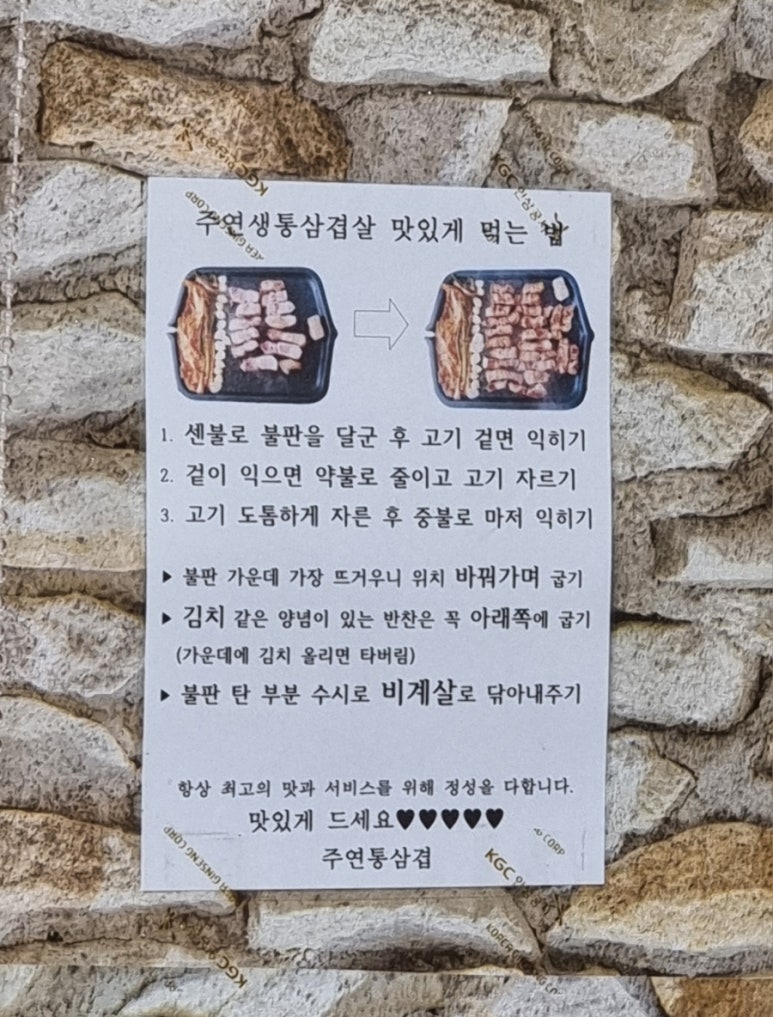 주연생통삼겹살 맛있게 먹는 법
1. 센불로 불판을 달군 후 고기 겉면 익히기
2. 겉이 익으면 약불로 줄이고 고기 자르기
3. 고기 도톰하게 자른 후 중불로 마저 익히기
▶ 불판 가운데 가장 뜨거우니 위치 바꿔가며 굽기
▶ 김치 같은 양념이 있는 반찬은 꼭 아래쪽에 굽기
(가운데에 김치 올리면 타버림)
▶ 불판 탄 부분 수시로 비계살로 닦아내주기
항상 최고의 맛과 서비스를 위해 정성을 다합니다.
맛있게 드세요♥♥♥♥♥
주연통삼겹
KGC
GINSENG CORP
KGC